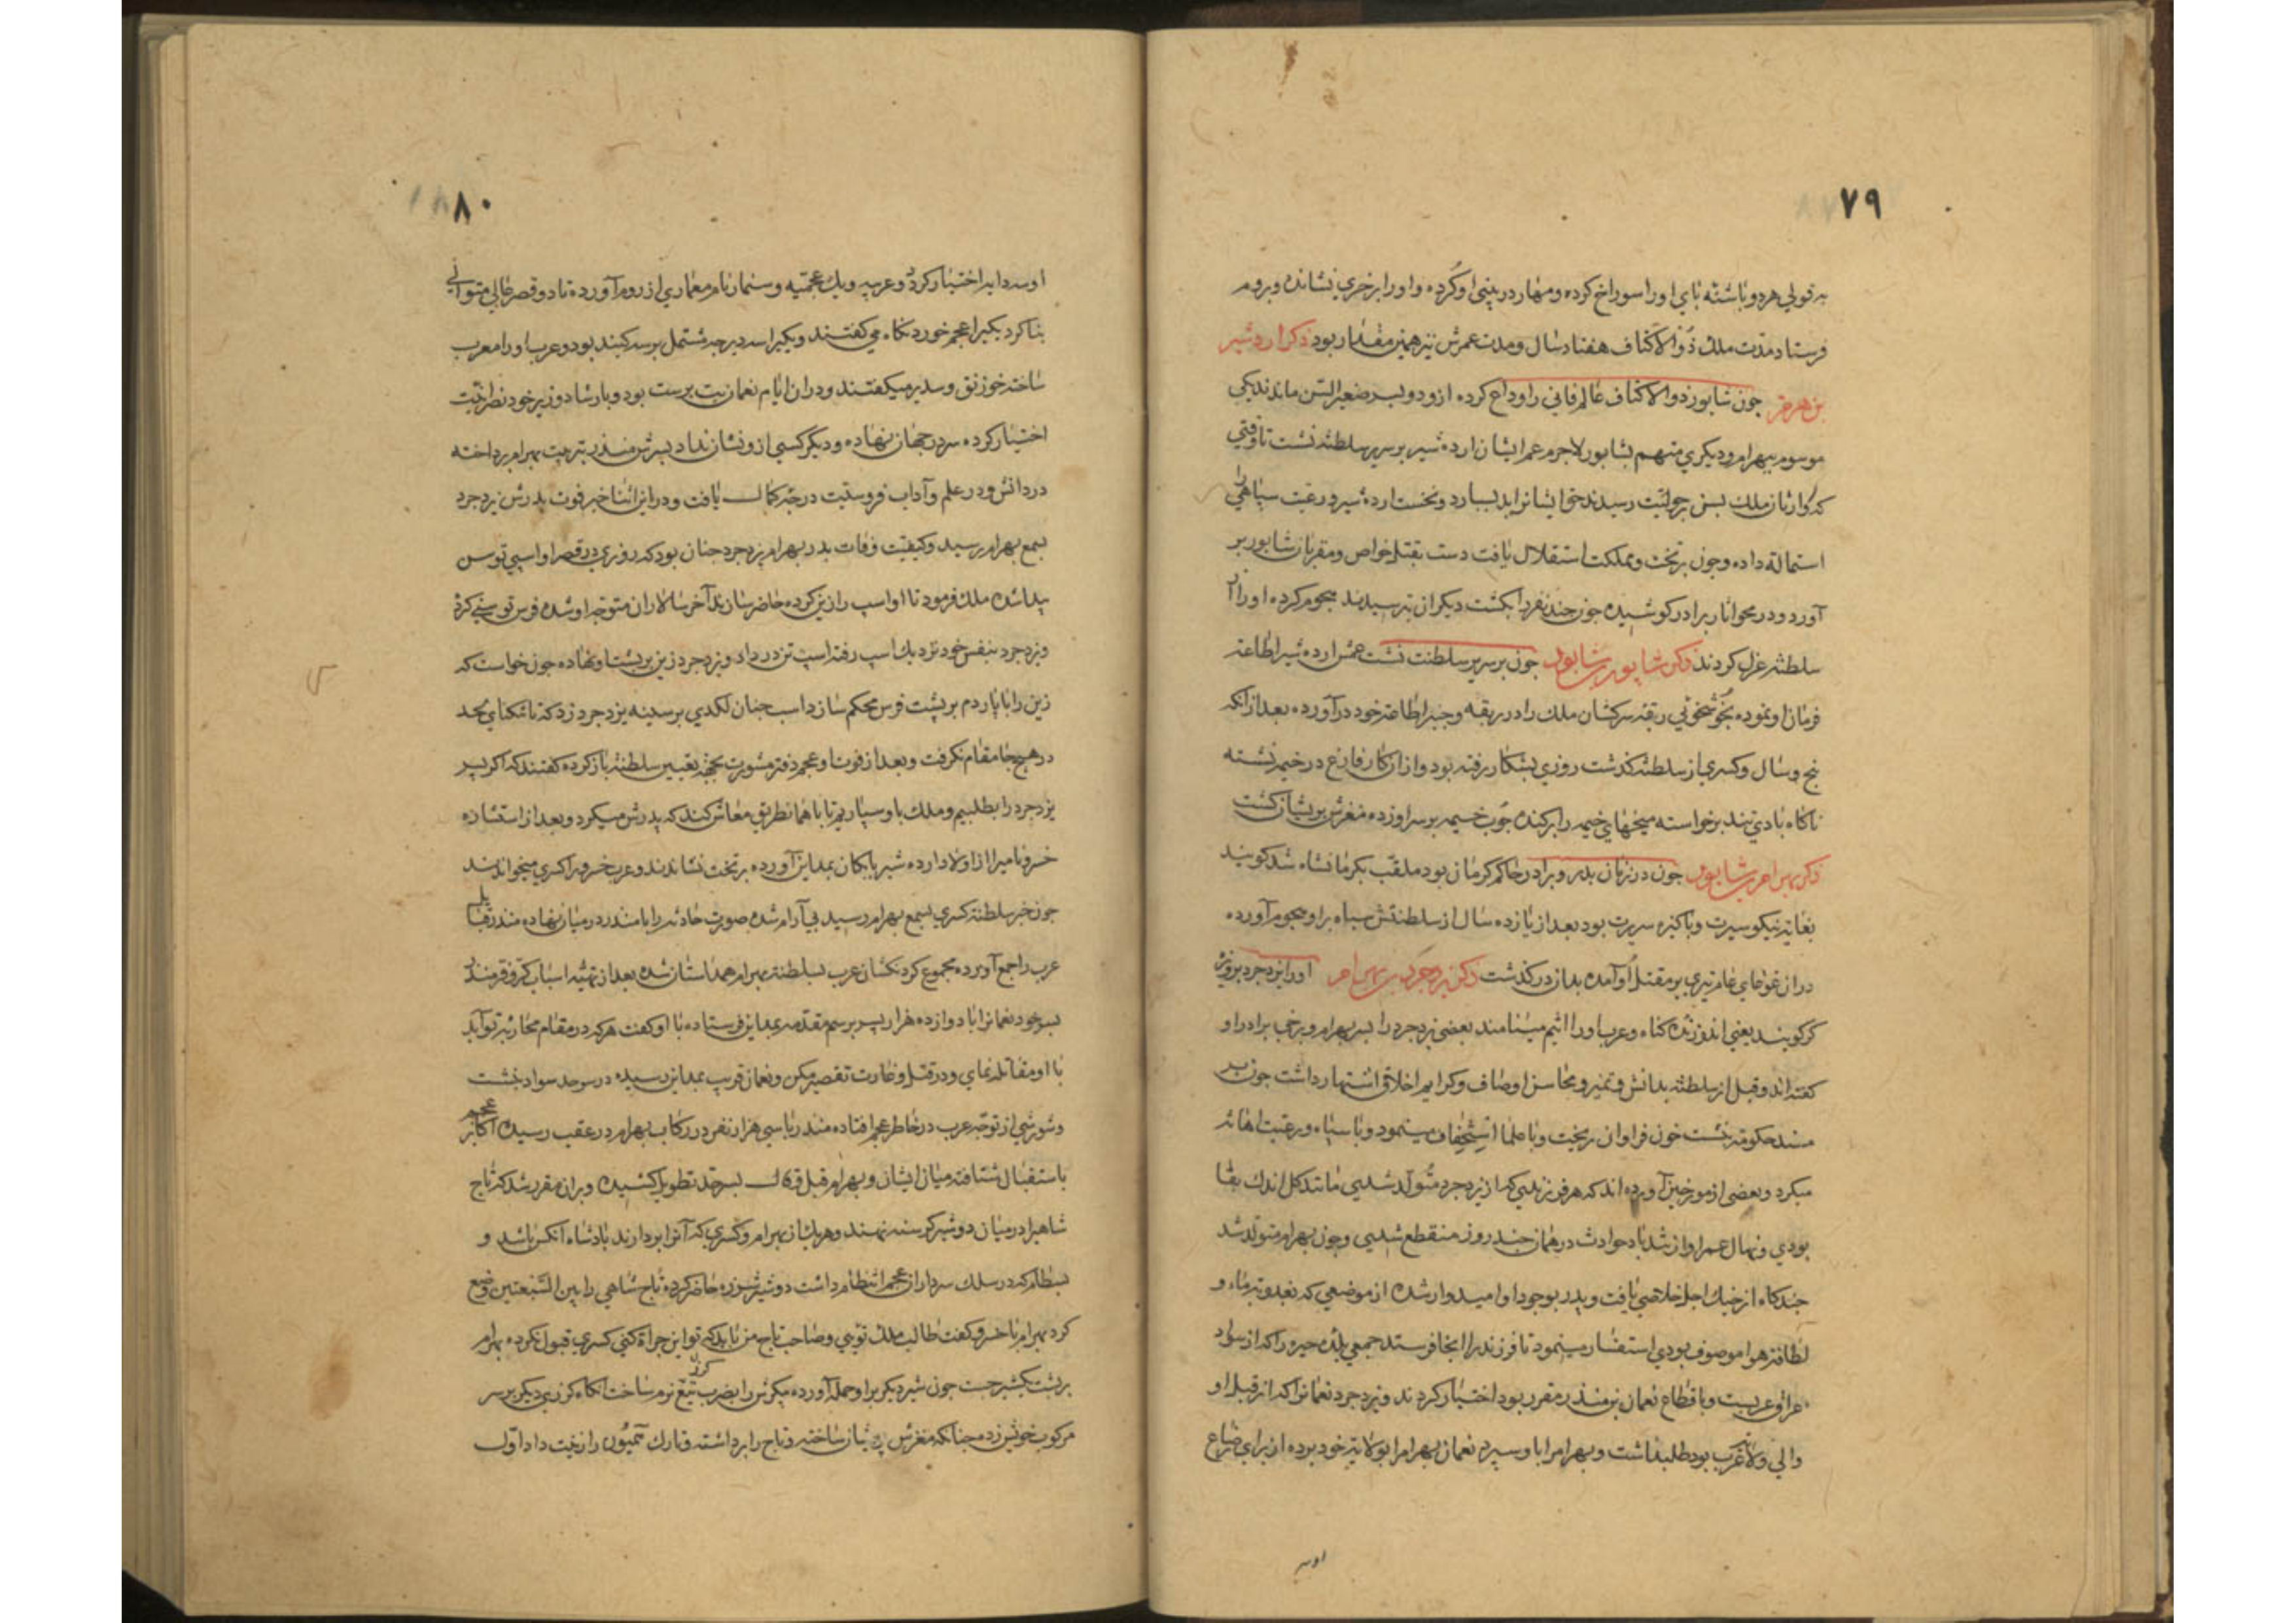 ۷۹
به قولی هر دو پاشنه پای او را سوراخ کرده و مهار در بینی او کرده و او را بر خری نشانده و بروم
فرستاد مدت ملک ذو الاکتاف هفتاد سال و مدت عمرش نیز همین مقدار بود ذکر اردشیر
بن هرمز چون شابور ذو الاکتاف عالم فانی را وداع کرده ازو دو پسر صغیر السن ماندند یکی
موسوم ببهرام و دیگری متهم بشابور لاجرم عم ایشان اردشیر بر سریر سلطنة نشست تا وقتی
که وارثان ملک بسن رجولیت رسیدند حق ایشانرا بدیشان بسپارد و نخست اردشیر و رعیت سپاهی را
استمالة داده و چون بر تخت و مملکت استقلال یافت دست بقتل خواص و مقربان شابور بر
آورد و در محو آثار برادر کوشیده چون چند نفر را بکشت دیگران بترسیدند هجوم کرده او را از
سلطنة عزل کردند ذکر شابور بن شابور چون بر سریر سلطنت نشست عمش اردشیر اطاعة
فرمان او نموده بخوشخوئی رقبه سرکشان ملک را در ربقه و چنبر اطاعة خود در آورده بعد از آنکه
پنج سال و کسری از سلطنة گذشت روزی بشکار رفته بود و از آن کار فارغ در خیمه نشسته
ناگاه بادی تند برخواسته میخهای خیمه را بر کنده چوب خیمه بر سر او زده مغزش پریشان گشت
ذکر بهرام بن شابور چون در زمان پدر و برادر حاکم کرمان بود ملقب بکرمانشاه شد گویند
بغایة نیکو سیرت و پاکیزه سریرت بود بعد از یازده سال از سلطنتش سپاه بر او هجوم آورده
در ان غوغای عام تیری بر مقتل او آمده بدان در گذشت ذکر یزدجرد بن بهرام او را یزدجرد بزه
گر گویند یعنی اندوزنده گناه و عرب او را اثیم مینامند بعضی یزدجرد را پسر بهرام و برخی برادر او
گفته اند و قبل از سلطنة بدانش و تمیز و محاسن اوصاف و کرایم اخلاق اشتهار داشت چون بر
مسند حکومة نشست خون فراوان ریخت و با علما استخفاف مینمود و با سپاه و رعیت اهانة
میکرد و بعضی از مورخین آورده اند که هر فرزندی که از یزدجرد متولد شدی مانند گل اندک بقا
بودی و نهال عمر او از تندباد حوادث در همان چند روز منقطع شدی و چون بهرام متولد شد
چندگاه از چنگ اجل خلاصی یافت و پدر بوجود او امیدوار شده از موضعی که بعذوبة ماء و
لطافة هوا موصوف بودی استفسار مینمود تا فرزند را انجا فرستد جمعی بلده حیره را که از سواد
عراق عربست و باقطاع نعمان بن منذر مقرر بود اختیار کردند و یزدجرد نعمانرا که از قبل او
والی ولایة عرب بود طلب داشت و بهرام را باو سپرد نعمان بهرام را بولایة خود برده از برای رضاع
او سه
۸۰
او سه دایه اختیار کرد دو عربیه و یک عجمیه و سنمار نام معماری از روم آورده تا دو قصر عالی متوالی
بنا کرد یکی را عجم خوردنگاه می گفتند و یکی را سه دیر چه مشتمل بر سه گنبد بود و عرب او را معرب
ساخته خورنق و سدیر میگفتند و در ان ایام نعمان بت پرست بود و بارشاد وزیر خود نصرانیت
اختیار کرده سر در جهان نهاده و دیگر کسی ازو نشان نداد پسرش منذر بتربیت بهرام پرداخته
در دانش و در علم و آداب فروسیت درجه کمال یافت و در این اثنا خبر فوت پدرش یزدجرد
بسمع بهرام رسید و کیفیت وفات پدر بهرام یزدجرد چنان بود که روزی در قصر او اسپی توسن
پیدا شده ملک فرمود تا او اسپ را زین کرده حاضر سازند آخر سالاران متوجه او شده فرس توسنی کرد
و یزدجرد بنفس خود نزدیک اسپ رفته اسپ تن در داد و یزدجرد زین بر پشت او نهاده چون خواست که
زین را با پاردم بر پشت فرس محکم سازد اسب چنان لگدی بر سینه یزدجرد زد که تا تنگنای لحد
در هیچ جا مقام نگرفت و بعد از فوت او عجم دفتر مشورت بجهة تعیین سلطنة باز کرده گفتند که اگر پسر
یزدجرد را بطلبیم و ملک باو سپاریم تا با ما همانطریق معاش کند که پدرش میکرد و بعد از استشاره
خسرو نامیرا از اولاد اردشیر بابکان بمداین آورده بر تخت نشاندند و عرب خسرو را کسری میخوانند
چون خبر سلطنة کسری بسمع بهرام رسید بی آرام شده صورت حادثه را با منذر در میان نهاده منذر قبایل
عرب را جمع آورده مجموع گردنکشان عرب بسلطنة بهرام همداستان شده بعد از تهیئه اسباب کر و فر منذر
پسر خود نعمانرا با دوازده هزار پسر برسم مقدمه بمداین فرستاده با او گفت هر که در مقام محاربة تو آید
با او مقاتله نمای و در قتل و غارت تقصیر مکن و نعمان قریب بمداین رسیده در سرحد سواد بنشست
و شورشی از توجه عرب در خاطر عجم افتاده منذر با سی هزار نفر در رکاب بهرام در عقب رسیده اکابر عجم
باستقبال شتافته میان ایشان و بهرام قیل و قال بسرحد تطویل کشیده و بران مقرر شد که تاج
شاهیرا در میان دو شیر گرسنه نهند و هر یک از بهرام و کسری که آنرا بردارند پادشاه انکس باشد و
بسطام که در سلک سرداران عجم انتظام داشت دو شیر شرزه حاضر کرده تاج شاهی را بین السبعین وضع
کرد بهرام با خسرو گفت طالب ملک توئی و صاحب تاج من باید که تو این جرأة کنی کسری قبول نکرده بهرام
بر پشت یکشیر جست چون شیر دیگر بر او حمله آورده پیکرش را بضرب تیغ گرز نرم ساخت انگاه گرزی دیگر بر سر
مرکوب خویش زده چنانکه مغزش پریشان ساخته و تاج را برداشته و تارک همیون را زینت داد اول